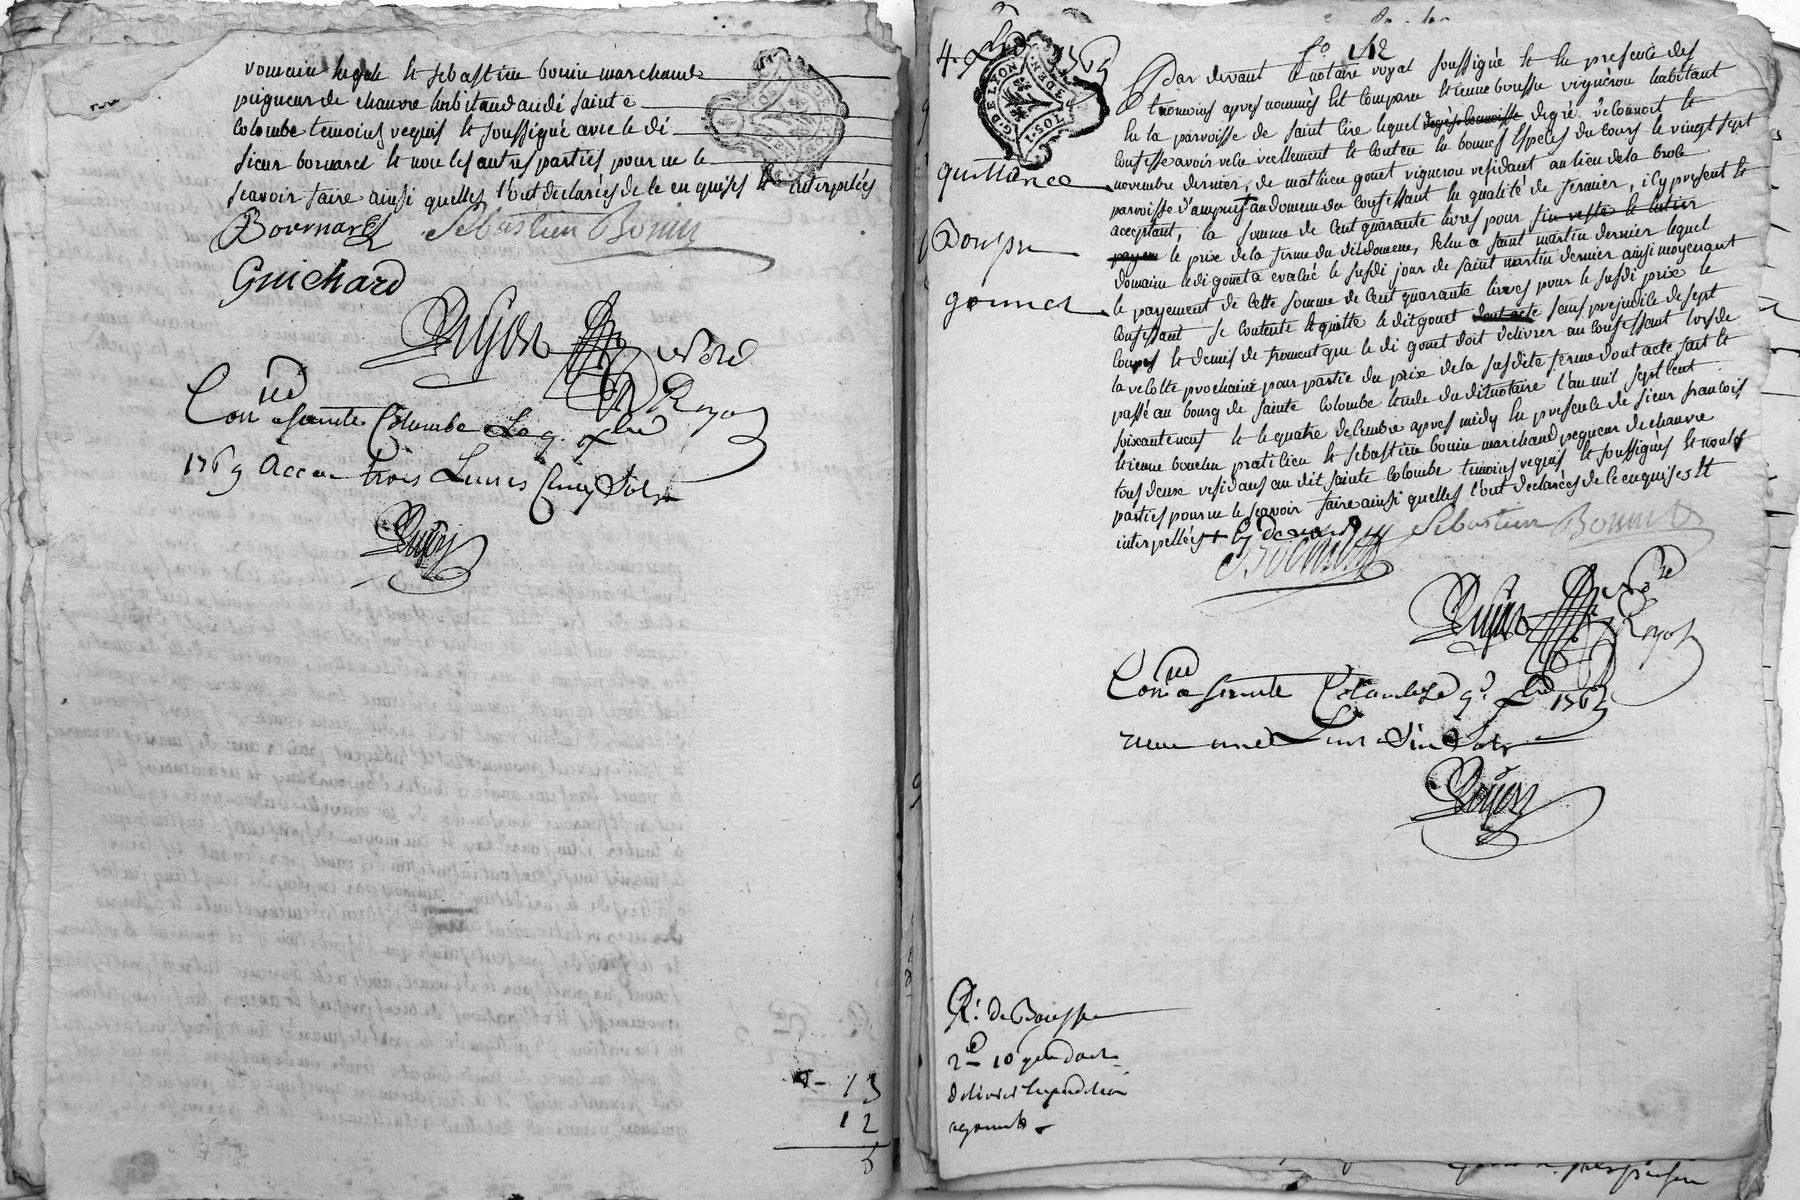 romain legale et sebastien bonin marchand
peigneur de chanvre habitand audi sainte
Colombe temoins requis et soussigné avec le di
sieur bornard et non les autres parties pour ne le
scavoir faire ainsi quelles l'ont declarées de ce enquises et interpelées
Bournard Sebastien Bonin
Guichard
Dujon Nore
Royal
Con a Sainte Colombe Le 9. xbre
1769 trois Livres Cinq Sols
Dujon
13
12
f° 142
4. xbre 1769
G. DE LYON
1 SOL
Par devant le notaire royal soussigné et en presence des
temoins apres nommés est comparu etienne bousse vigneron habitant
en la parroisse de saint cire lequel de gré reconnoit et
confesse avoir recu reellement et conten en bonnes especes du cours le vingt sept
novembre dernier, de mathieu gonet vigneron residant au lieu de la brole
parroisse d'ampuis au domenne du confessant en qualité de fermier, icy present et
acceptant, la somme de cent quarante livres pour
le prix de la ferme du dit domenne, echu a saint martin dernier lequel
domaine le di gonet a evalué le susdi jour de saint martin dernier ainsi moyenant
le payement de cette somme de cent quarante livres pour le susdi prix le
confessant se contente et quitte le dit gonet sans prejudice de sept
coupes et demis de froment que le di gonet doit delivrer au confessant lors de
la recolte prochaine pour partie du prix de la susdite ferme dont acte fait et
passé au bourg de sainte colombe etude du dit notaire l'an mil sept cent
soixante neuf et le quatre decembre apres midy en presence de sieur francois
etienne bouchu praticien et sebastien bonin marchand pegneur de chanvre
tous deux residans au dit sainte colombe temoins requis et soussignés et non les
parties pour ne le scavoir faire ainsi quelles l'ont declarées de ce enquises et
interpellées
Sebastien Bonin
Dujon Nore
Royal
quittance
Bousse
gonnet
Con a Sainte Colombe Le 9. xbre 1769
une Livre Six Sols
Dujon
R. de Bousse
2
10
delivré Expedition
a gonet